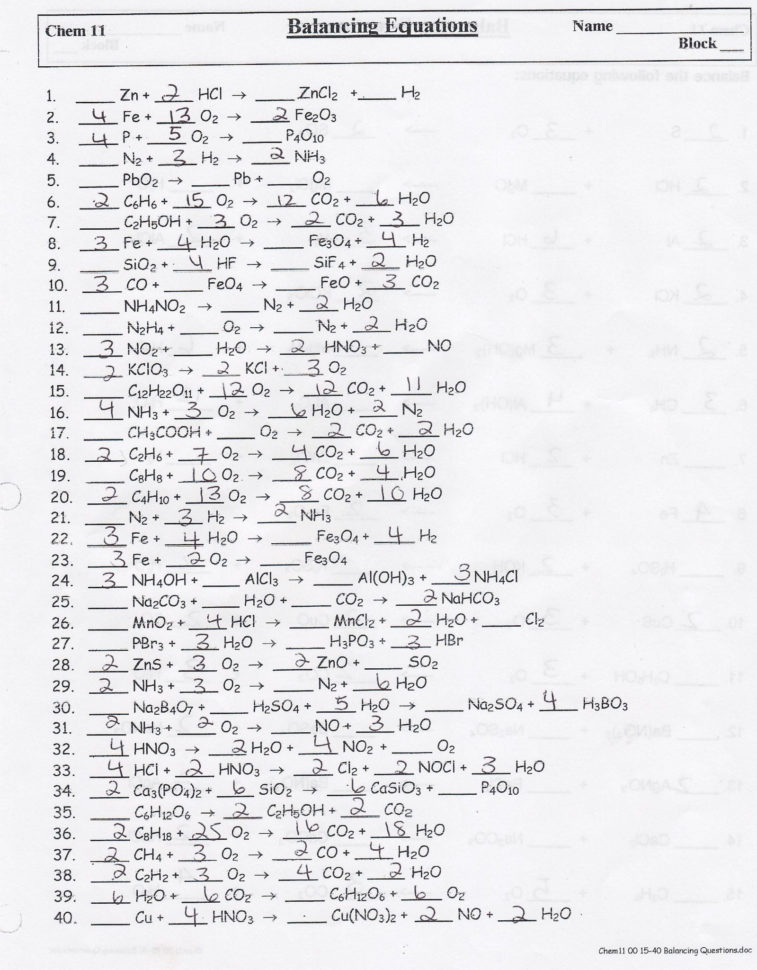 Chem 11 Balancing Equations Name ____
Block ___
1. ____ Zn + 2 HCl → ____ ZnCl₂ + ____ H₂
2. 4 Fe + 13 O₂ → 2 Fe₂O₃
3. 4 P + 5 O₂ → ____ P₄O₁₀
4. ____ N₂ + 3 H₂ → 2 NH₃
5. ____ PbO₂ → ____ Pb + ____ O₂
6. 2 C₆H₆ + 15 O₂ → 12 CO₂ + 6 H₂O
7. ____ C₂H₅OH + 3 O₂ → 2 CO₂ + 3 H₂O
8. 3 Fe + 4 H₂O → ____ Fe₃O₄ + 4 H₂
9. ____ SiO₂ + 4 HF → ____ SiF₄ + 2 H₂O
10. 3 CO + ____ FeO₄ → ____ FeO + 3 CO₂
11. ____ NH₄NO₂ → ____ N₂ + 2 H₂O
12. ____ N₂H₄ + ____ O₂ → ____ N₂ + 2 H₂O
13. 3 NO₂ + ____ H₂O → 2 HNO₃ + ____ NO
14. 2 KClO₃ → 2 KCl + 3 O₂
15. ____ C₁₂H₂₂O₁₁ + 12 O₂ → 12 CO₂ + 11 H₂O
16. 4 NH₃ + 3 O₂ → 6 H₂O + 2 N₂
17. ____ CH₃COOH + ____ O₂ → 2 CO₂ + 2 H₂O
18. 2 C₂H₆ + 7 O₂ → 4 CO₂ + 6 H₂O
19. ____ C₈H₈ + 10 O₂ → 8 CO₂ + 4 H₂O
20. 2 C₄H₁₀ + 13 O₂ → 8 CO₂ + 10 H₂O
21. ____ N₂ + 3 H₂ → 2 NH₃
22. 3 Fe + 4 H₂O → ____ Fe₃O₄ + 4 H₂
23. 3 Fe + 2 O₂ → ____ Fe₃O₄
24. 3 NH₄OH + ____ AlCl₃ → ____ Al(OH)₃ + 3 NH₄Cl
25. ____ Na₂CO₃ + ____ H₂O + ____ CO₂ → 2 NaHCO₃
26. ____ MnO₂ + 4 HCl → ____ MnCl₂ + 2 H₂O + ____ Cl₂
27. ____ PBr₃ + 3 H₂O → ____ H₃PO₃ + 3 HBr
28. 2 ZnS + 3 O₂ → 2 ZnO + ____ SO₂
29. 2 NH₃ + 3 O₂ → ____ N₂ + 6 H₂O
30. ____ Na₂B₄O₇ + ____ H₂SO₄ + 5 H₂O → ____ Na₂SO₄ + 4 H₃BO₃
31. 2 NH₃ + 2 O₂ → ____ NO + 3 H₂O
32. 4 HNO₃ → 2 H₂O + 4 NO₂ + ____ O₂
33. 4 HCl + 2 HNO₃ → 2 Cl₂ + 2 NOCl + 3 H₂O
34. 2 Ca₃(PO₄)₂ + 6 SiO₂ → 6 CaSiO₃ + ____ P₄O₁₀
35. ____ C₆H₁₂O₆ → 2 C₂H₅OH + 2 CO₂
36. 2 C₈H₁₈ + 25 O₂ → 16 CO₂ + 18 H₂O
37. 2 CH₄ + 3 O₂ → 2 CO + 4 H₂O
38. 2 C₂H₂ + 3 O₂ → 4 CO₂ + 2 H₂O
39. 6 H₂O + 6 CO₂ → ____ C₆H₁₂O₆ + 6 O₂
40. ____ Cu + 4 HNO₃ → ____ Cu(NO₃)₂ + 2 NO + 2 H₂O
Chem11 00 15-40 Balancing Questions.doc